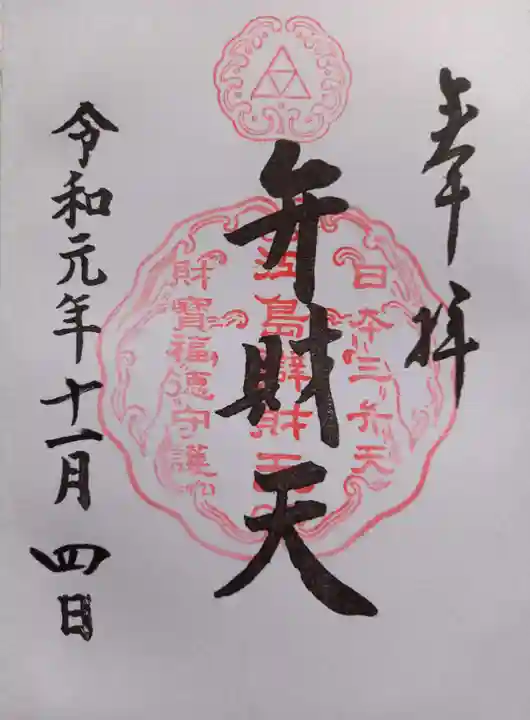 奉拝
日本三弁天
江島辯財天
財寶福徳守護
弁財天
令和元年十一月四日